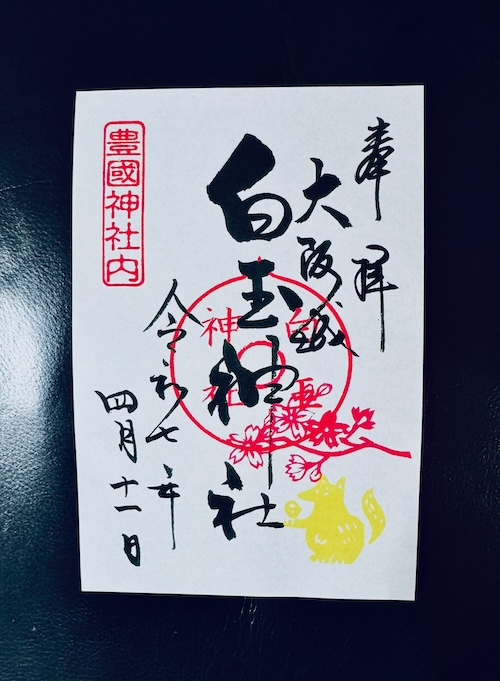 奉拝
大阪城
白玉神社
白玉
神社
令和七年
四月十一日
豊國神社内